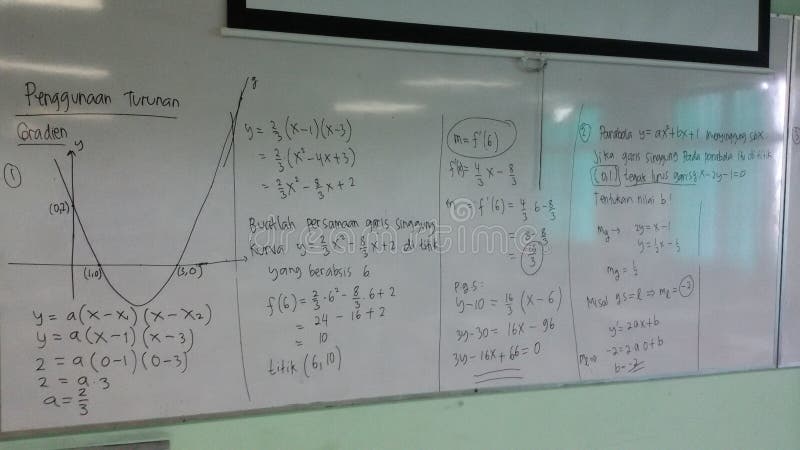 Penggunaan Turunan
Gradien
①
y
g
(0,2)
(1,0)
(3,0)
y = a(x-x₁)(x-x₂)
y = a(x-1)(x-3)
2 = a(0-1)(0-3)
2 = a.3
a = 2/3
y = 2/3 (x-1)(x-3)
= 2/3 (x²-4x+3)
= 2/3 x² - 8/3 x + 2
Buatlah persamaan garis singgung
kurva y = 2/3 x² - 8/3 x + 2 di titik
yang berabsis 6
f(6) = 2/3 . 6² - 8/3 . 6 + 2
= 24 - 16 + 2
= 10
titik (6,10)
m = f'(6)
f'(x) = 4/3 x - 8/3
m = f'(6) = 4/3 . 6 - 8/3
= 8 - 8/3
= 16/3
p.g.s :
y-10 = 16/3 (x-6)
3y-30 = 16x-96
3y-16x+66=0
② Parabola y = ax²+bx+1 menyinggung sbx.
Jika garis singgung pada parabola itu di titik
(0,1) tegak lurus garis x-2y-1=0
Tentukan nilai b!
mg → 2y = x-1
y = 1/2 x - 1/2
mg = 1/2
Misal gs = l ⇒ ml = -2
y' = 2ax+b
-2 = 2.a.0+b
b = -2
dreamstime